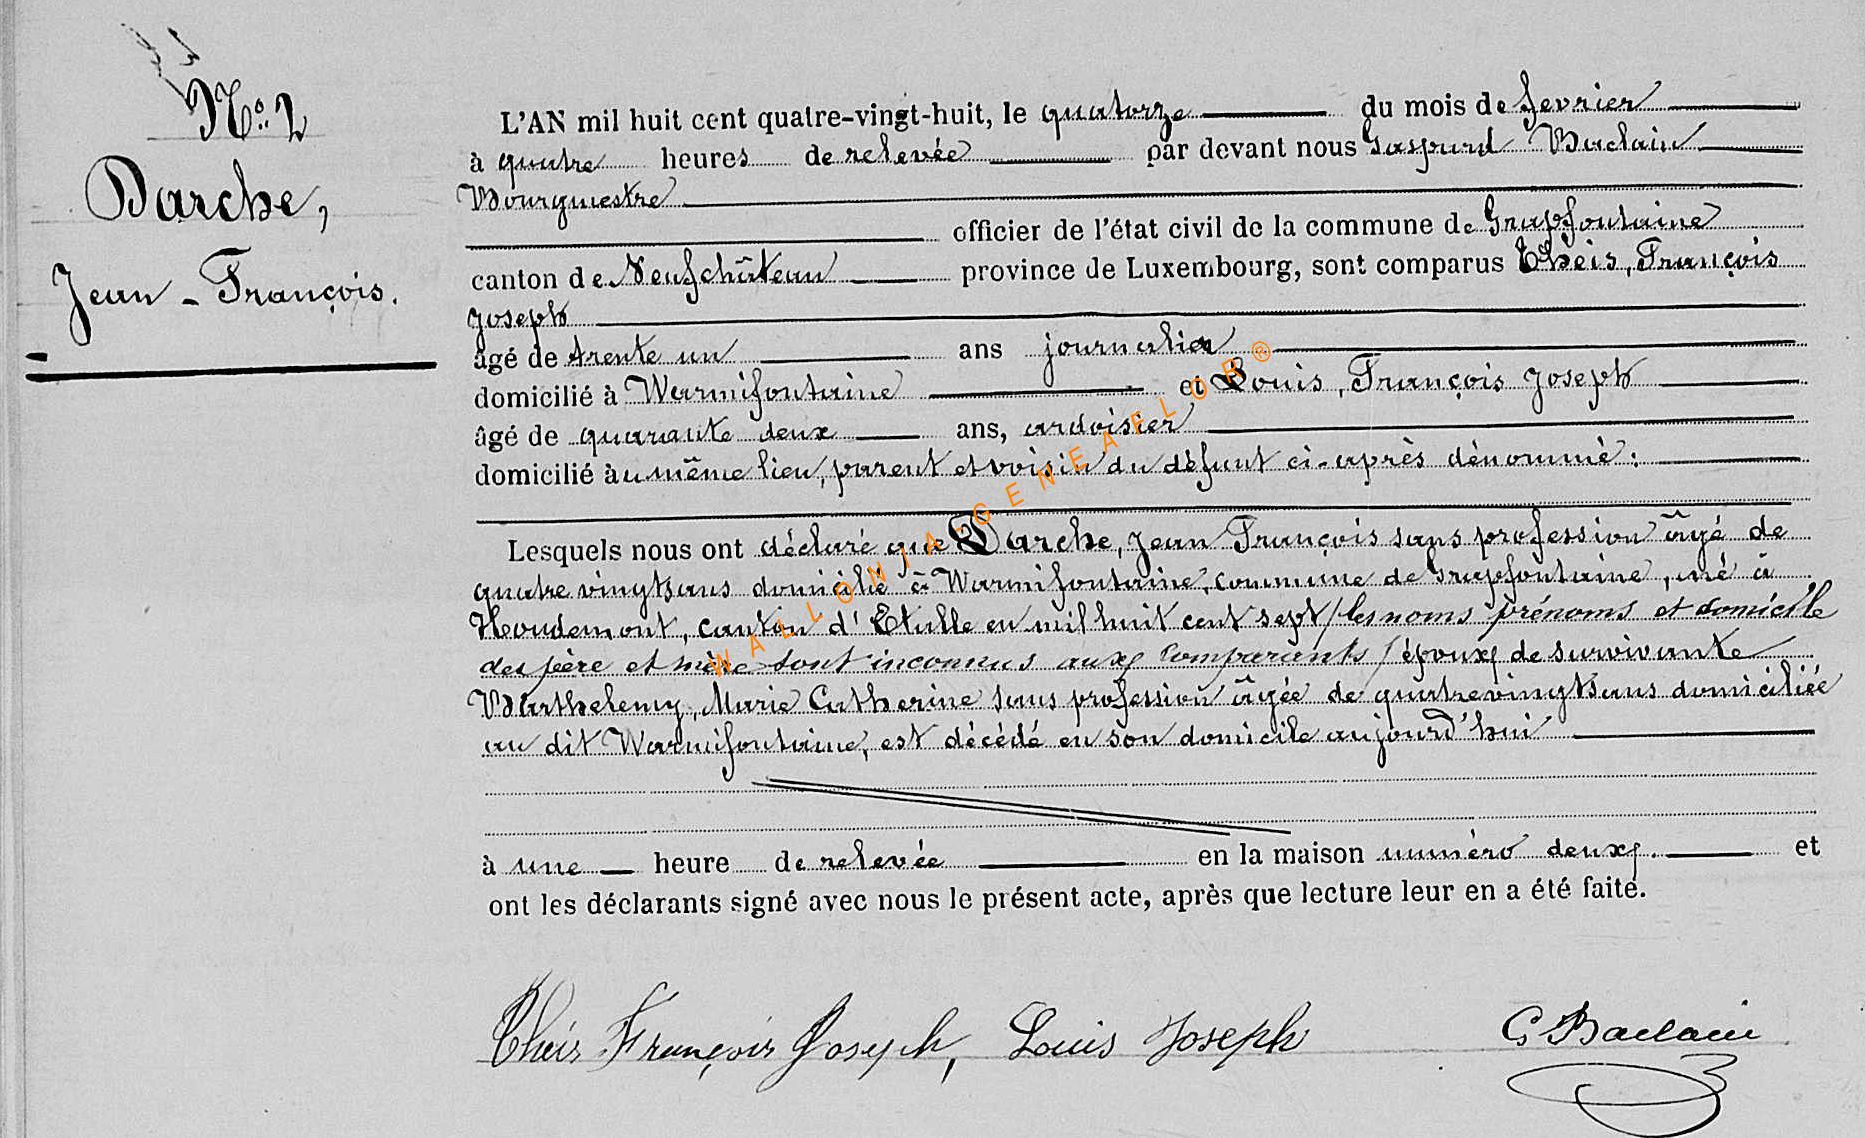 No. 2
Darche,
Jean - François.
L'AN mil huit cent quatre-vingt-huit, le quatorze du mois de fevrier
à quatre heures de relevée par devant nous Gaspard Baclain
Bourgmestre
officier de l'état civil de la commune de Grapfontaine
canton de Neufchâteau province de Luxembourg, sont comparus Theis, François
Joseph
âgé de trente un ans journalier
domicilié à Warmifontaine et Louis, François Joseph
âgé de quarante deux ans, ardoisier
domicilié àu même lieu, parent et voisin du défunt ci-après dénommé:
Lesquels nous ont déclaré que Darche, Jean François sans profession âgé de
quatre vingts ans domicilié à Warmifontaine, commune de Grapfontaine, né à
Houdemont, canton d'Etalle en mil huit cent sept / les noms prénoms et domicile
des père et mère sont inconnus aux comparants / époux de survivante
Barthelemy, Marie Catherine sans profession âgée de quatre vingts ans domiciliée
au dit Warmifontaine, est décédé en son domicile aujourd'hui
à une heure de relevée en la maison numéro deux. et
ont les déclarants signé avec nous le présent acte, après que lecture leur en a été faite.
Theis François Joseph, Louis Joseph G Baclain
WALLONIA-GENEAFLOR®